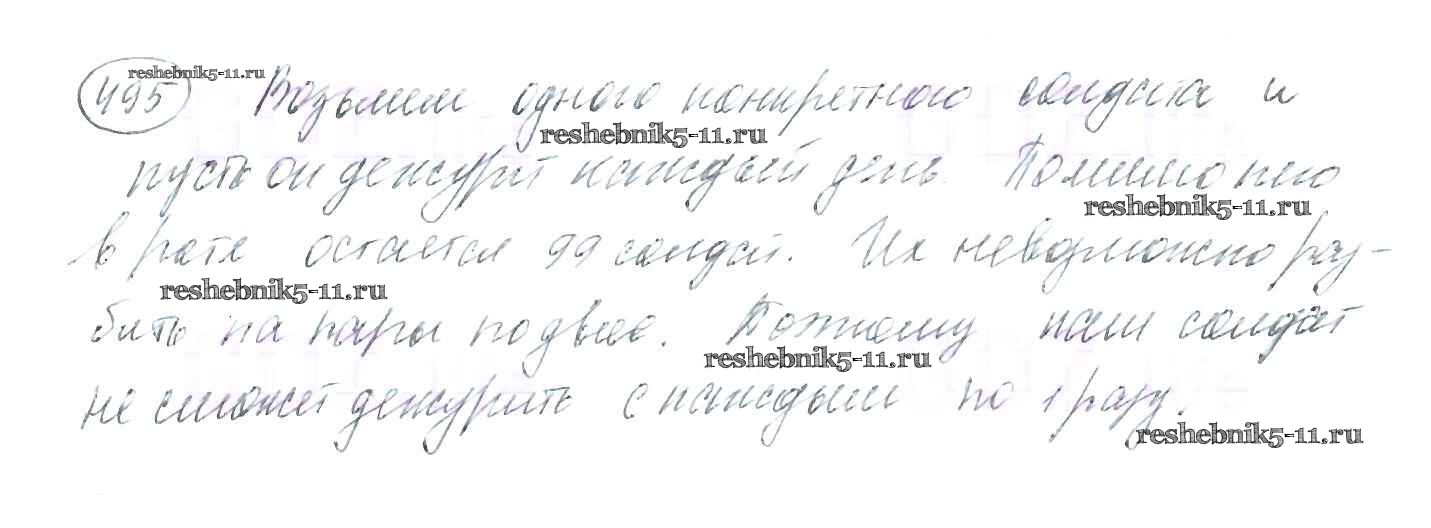 495 reshebnik5-11.ru Возьмем одного конкретного солдата и
reshebnik5-11.ru
пусть он дежурит каждый день. Помимо него
reshebnik5-11.ru
в роте остается 99 солдат. Их невозможно раз-
reshebnik5-11.ru
бить на пары по двое. Поэтому наш солдат
reshebnik5-11.ru
не сможет дежурить с каждым по 1 разу.
reshebnik5-11.ru